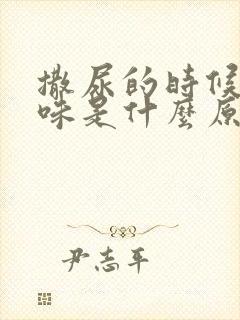 撒尿的時候
味是什麼原
尹志平